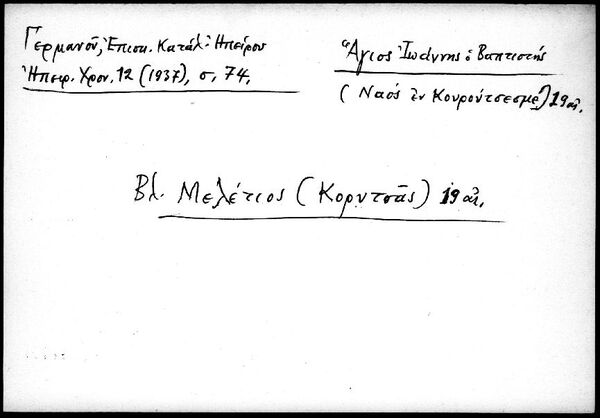 Γερμανοῦ, Ἐπισκ. Κατάλ. Ἠπείρου
Ἠπειρ. Χρον. 12 (1937), σ. 74.
Ἅγιος Ἰωάννης ὁ Βαπτιστής
(Ναὸς ἐν Κουρούτσεσμε) 19 αἰ.
Βλ. Μελέτιος (Κορυτσᾶς) 19 αἰ.